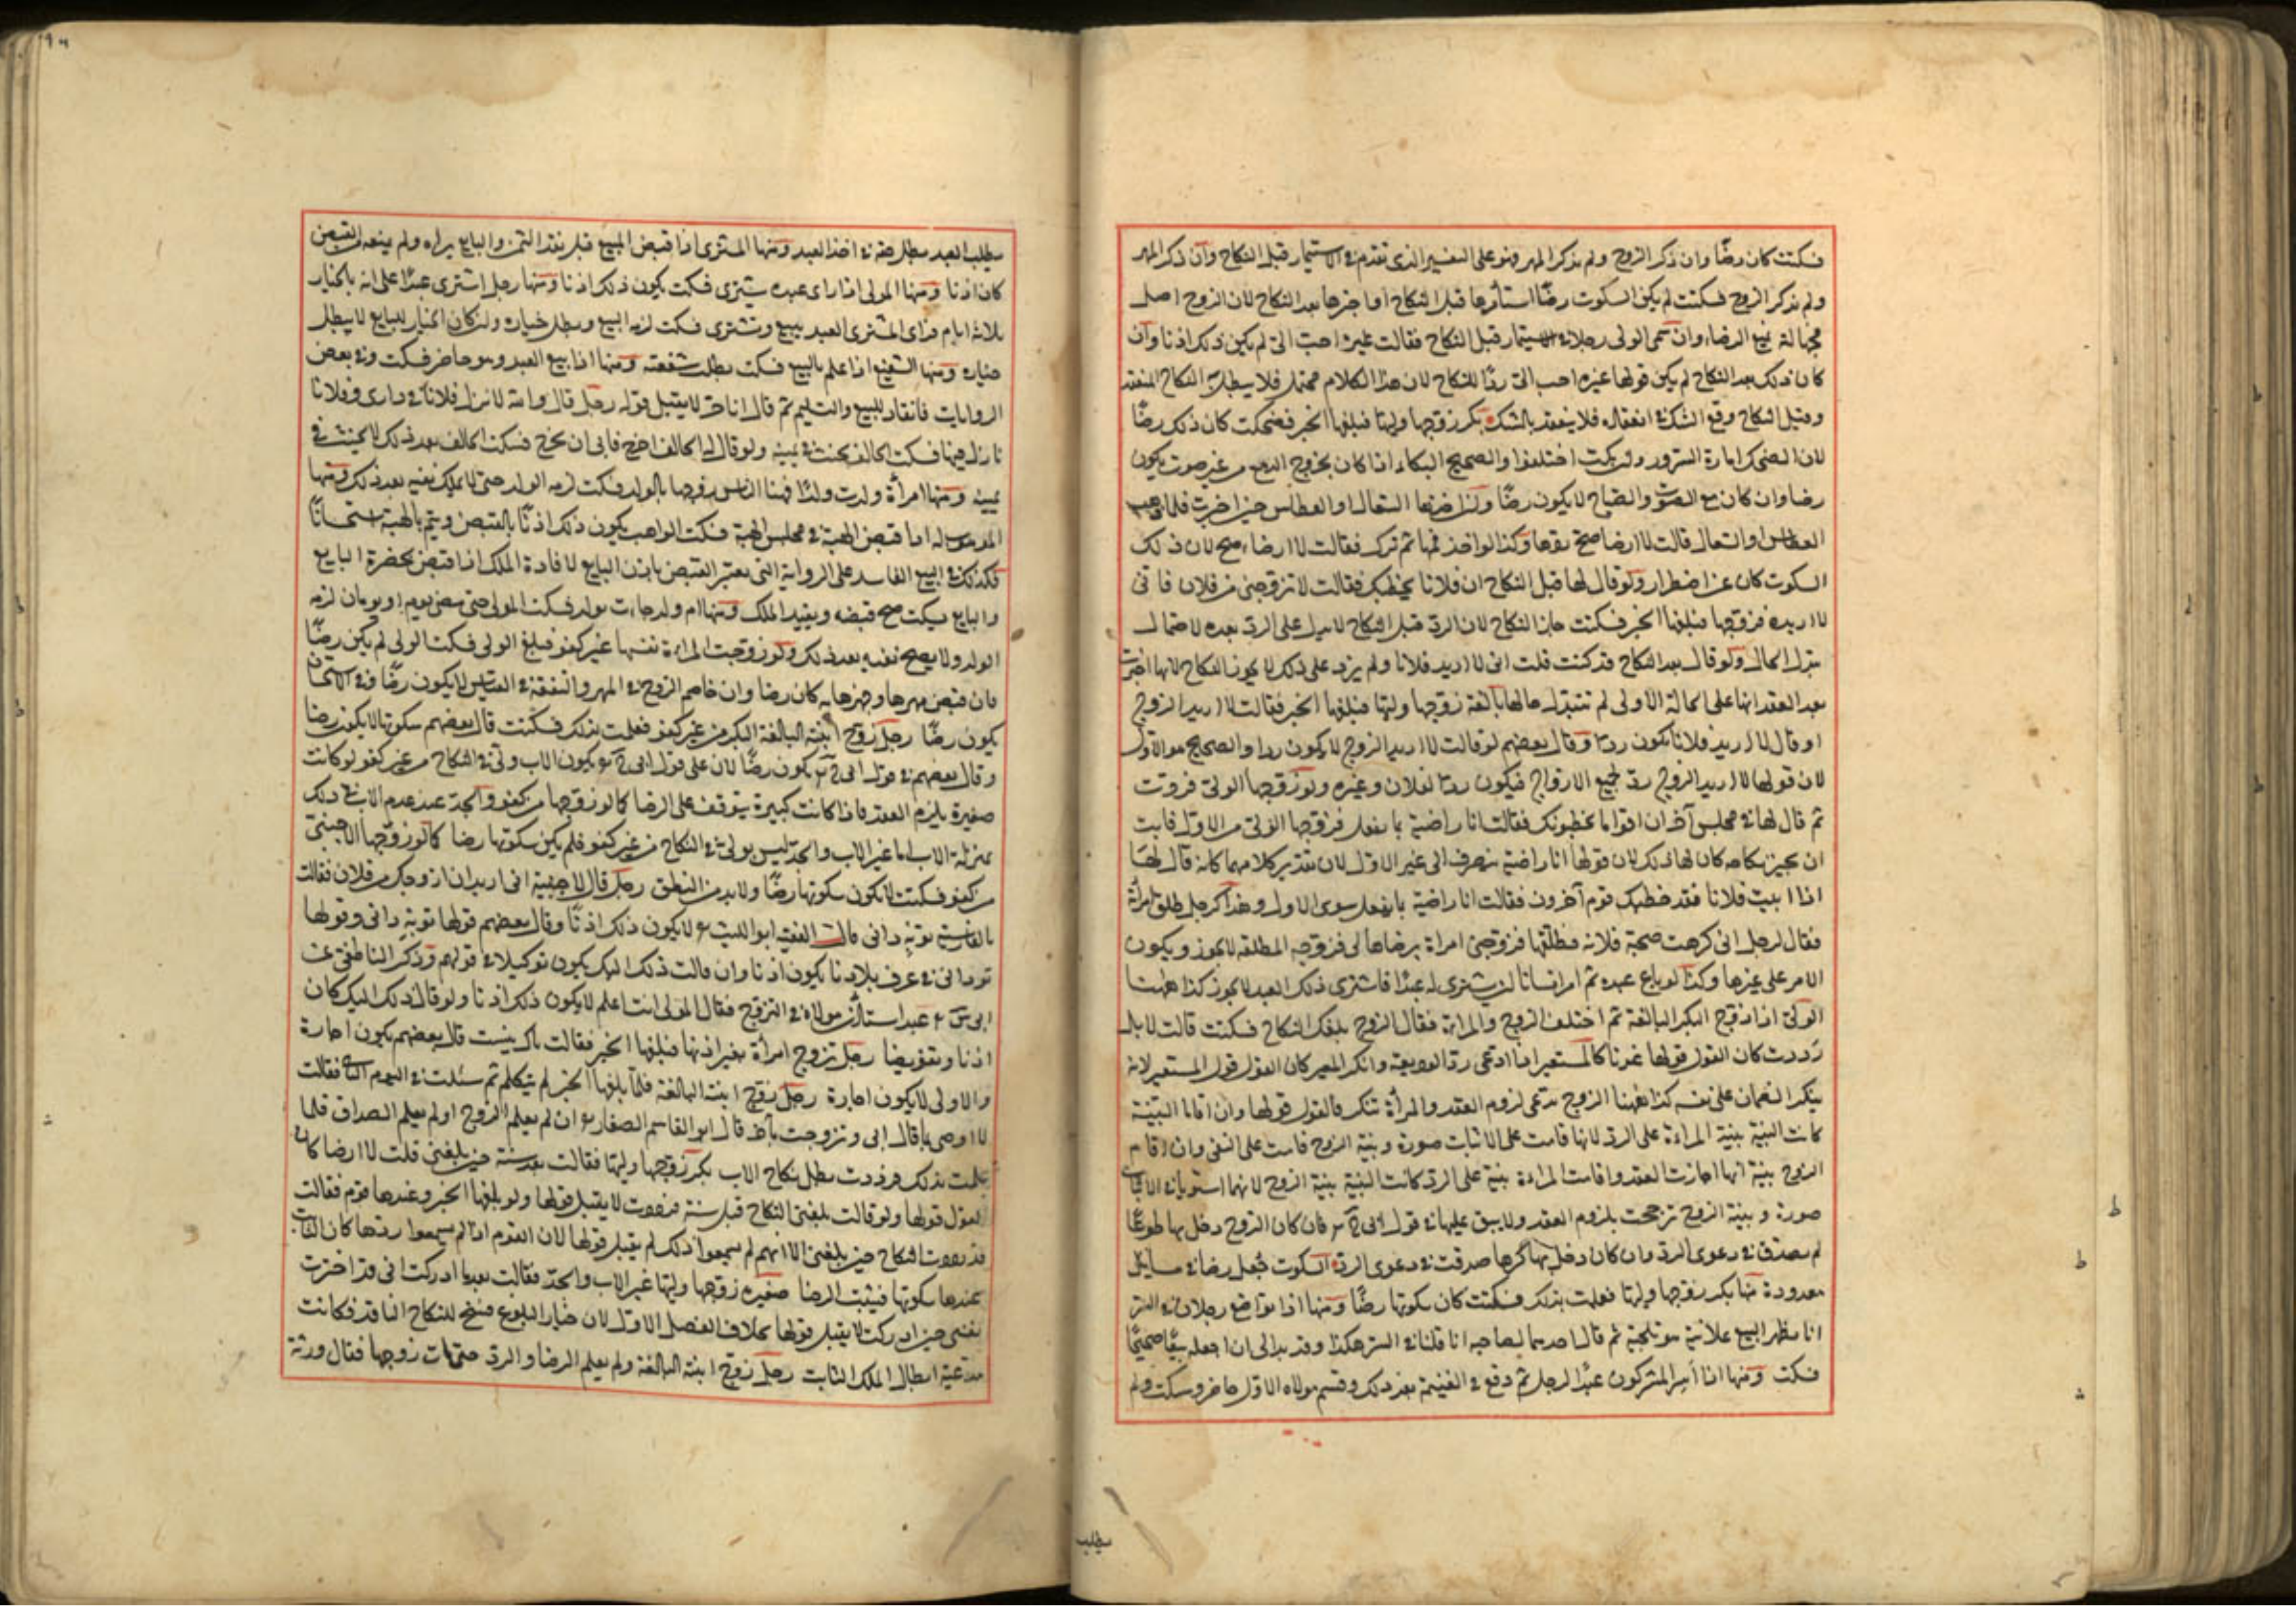 فسكتت كان رضًا وان ذكر الزوج ولم يذكر المهر فهو على التفسير الذى تقدم فى الاستيمار قبل النكاح وان ذكر المهر
ولم يذكر الزوج فسكتت لم يكن السكوت رضًا استأمرها قبل النكاح او اخبرها بعد النكاح لان الزوج اصل
فجهالته تمنع الرضا وان سمى الولى رجلا فى الاستيمار قبل النكاح فقالت غيره احب الىّ لم يكن ذلك اذنا وان
كان ذلك بعد النكاح لم يكن قولها غيره احب الىّ ردًا للنكاح لان هذا الكلام محتمل فلا يبطل به النكاح المنعقد
وقبل النكاح وقع الشك فى انعقاده فلا ينعقد بالشك بكر زوجها وليها فبلغها الخبر فضحكت كان ذلك رضًا
لان الضحك امارة السرور وان بكت اختلفوا والصحيح البكاء اذا كان بخروج الدمع من غير صوت يكون
رضا وان كان مع الصوت والصياح لا يكون رضًا وان اخذها السعال او العطاس حين اخبرت فلما ذهب
العطاس او السعال قالت لا ارضا صح ردها وكذا لو اخذ فمها ثم ترك فقالت لا ارضا صح لان ذلك
السكوت كان عن اضطرار ولو قال لها قبل النكاح ان فلانا يخطبك فقالت لا تزوجنى من فلان فانى
لا اريده فزوجها فبلغها الخبر فسكتت جاز النكاح لان الرد قبل النكاح لا يدل على الرد بعده لاحتمال
تبدل الحال ولو قال بعد النكاح قد كنت قلت انى لا اريد فلانا ولم يزد على ذلك لا يجوز النكاح لانها اخبرت
بعد العقد انها على الحالة الاولى لم تتبدل حالها بالغة زوجها وليها فبلغها الخبر فقالت لا اريد الزوج
او قال لا اريد فلانا يكون ردًا وقال بعضهم لو قالت لا اريد الزوج لا يكون ردا والصحيح هو الاول
لان قولها لا اريد الزوج رد لجميع الازواج فيكون ردًا لفلان وغيره ولو زوجها الولى فردت
ثم قال لها فى مجلس آخر ان اقواما يخطبونك فقالت انا راضية بما يفعل فزوجها الولى من الاول فابت
ان تجيز نكاحه كان لها ذلك لان قولها انا راضية ينصرف الى غير الاول لان تقدير كلامهما كانه قال لها
اذا ابيت فلانا فقد خطبك قوم آخرون فقالت انا راضية بما يفعل سوى الاول وهذا كرجل طلق امرأة
فقال لرجل انى كرهت صحبة فلانة فطلقتها فزوجنى امراة برضاها لى فزوجه المطلقة لا يجوز ويكون
الامر على غيرها وكذا لو باع عبده ثم امر انسانا ان يشترى له عبدًا فاشترى ذلك العبد لا يجوز كذا ههنا
الولى اذا زوج البكر البالغة ثم اختلف الزوج والمراة فقال الزوج بلغك النكاح فسكتت قالت لا بل
رددت كان القول قولها عندنا كالمستعير اذا ادعى رد الوديعة وانكر المعير كان القول قول المستعير لانه
ينكر الضمان على نفسه كذا ههنا الزوج يدعى لزوم العقد والمرأة تنكر فالقول قولها وان اقاما البينة
كانت البينة بينة المراة على الرد لانها قامت على الاثبات صورة وبينة الزوج قامت على النفى وان اقام
الزوج بينة انها اجازت العقد واقامت المراة بينة على الرد كانت البينة بينة الزوج لانهما استويا فى الاثبات
صورة وبينة الزوج ترجحت بلزوم العقد ولا يبق عليها فى قول فان كان الزوج دخل بها طوعًا
لم تصدق فى دعوى الرد وان كان دخل بها كرها صدقت فى دعوى الرد السكوت جعل رضا فى مسايل
معدودة منها بكر زوجها وليها فعلمت بذلك فسكتت كان سكوتها رضًا ومنها اذا تواضع رجلان فى السر
انا نظهر البيع علانية هو تلجية ثم قال احدهما لصاحبه انا قلنا فى السر هكذا وقد بدا لى ان اجعله بيعًا صحيحًا
فسكت ومنها اذا اسر المشركون عبد الرجل ثم وقع فى الغنيمة بعد ذلك وقسم ومولاه الاول حاضر وسكت ولم
يطلب
يطلب العبد بطل حقه فى اخذ العبد ومنها المشترى اذا قبض المبيع قبل نقد الثمن والبايع يراه ولم يمنعه القبض
كان اذنا ومنها المولى اذا راى عبده يشترى فسكت يكون ذلك اذنا ومنها رجل اشترى عبدًا على انه بالخيار
ثلاثة ايام فراى المشترى العبد يبيع ويشترى فسكت لزمه البيع وبطل خياره ولو كان الخيار للبايع لا يبطل
خياره ومنها الشفيع اذا علم بالبيع فسكت بطلت شفعته ومنها اذا بيع العبد وهو حاضر فسكت وفى بعض
الروايات فانقاد للبيع والتسليم ثم قال انا حر لا يقبل قوله رجل قال والله لا انزل فلانا فى دارى وفلانا
نازل فيها فسكت الحالف يحنث فى يمينه ولو قال له الحالف اخرج فابى ان يخرج فسكت الحالف بعد ذلك لا يحنث فى
يمينه ومنها امرأة ولدت ولدًا فهنا الناس زوجها بالولد فسكت لزمه الولد حتى لا يملك نفيه بعد ذلك ومنها
الموهوب له اذا قبض الهبة فى مجلس الهبة فسكت الواهب يكون ذلك اذنًا بالقبض ويتم بالهبة استحسانًا
فكذلك فى البيع الفاسد على الرواية التى يعتبر القبض باذن البايع لافادة الملك اذا قبض بحضرة البايع
والبايع يسكت صح قبضه ويفيد الملك ومنها ام ولد جاءت بولد فسكت المولى حتى مضى يوم او يومان لزمه
الولد ولا يصح نفيه بعد ذلك ولو زوجت المراة نفسها غير كفو فبلغ الولى فسكت الولى لم يكن رضًا
فان قبض مهرها وجهزها به كان رضا وان خاصم الزوج فى المهر والنفقة فى القياس لا يكون رضًا وفى الاستحسان
يكون رضًا رجل زوج ابنته البالغة البكر من غير كفو فعلمت بذلك فسكتت قال بعضهم سكوتها لا يكون رضا
وقال بعضهم فى قول يكون رضًا لان على قول يكون الاب ولى فى النكاح من غير كفو لو كانت
صغيرة يلزم العقد فاذا كانت كبيرة يتوقف على الرضا كما لو زوجها من كفو والجد عند عدم الاب فى ذلك
بمنزلة الاب اما غير الاب والجد ليس بولى فى النكاح من غير كفو فلم يكن سكوتها رضا كما لو زوجها الاجنبى
من كفو فسكتت لا يكون سكوتها رضًا ولابد من النطق رجل قال لاجنبية انى اريد ان ازوجك من فلان فقالت
بالفارسية توبه دانى قال الفقيه ابو الليث لا يكون ذلك اذنًا وقال بعضهم قولها توبه دانى وقولها
تو دانى فى عرف بلادنا يكون اذنا وان قالت ذلك اليك يكون توكيلا فى قولهم وذكر الناطفى عن
عبد استأذن مولاه فى التزوج فقال المولى انت اعلم لا يكون ذلك اذنا ولو قال ذلك اليك كان
اذنا وتفويضا رجل تزوج امرأة بغير اذنها فبلغها الخبر فقالت باك نيست قال بعضهم يكون اجازة
والاولى لا يكون اجازة رجل زوج ابنته البالغة فلما بلغها الخبر لم يتكلم ثم سئلت فى اليوم الثانى فقالت
لا ارضى بما قال ابى وتزوجت بآخر قال ابو القاسم الصفار ان لم يعلم الزوج او لم يعلم الصداق فلما
علمت بذلك فرددت بطل نكاح الاب بكر زوجها وليها فقالت بعد سنة حين بلغنى قلت لا ارضا كان
القول قولها ولو قالت بلغنى النكاح قبل سنة فرددت لا يقبل قولها ولو بلغها الخبر وعندها قوم فقالت
قد رددت النكاح حين بلغنى الا انهم لم يسمعوا ذلك لم يقبل قولها لان القوم اذا لم يسمعوا ردها كان الثابت
عندها سكوتها فيثبت الرضا صغيرة زوجها وليها غير الاب والجد فقالت بعدما ادركت انى قد اخترت
نفسى حين ادركت لا يقبل قولها بخلاف الفصل الاول لان خيار البلوغ فسخ للنكاح النافذ فكانت
مدعية ابطال الملك الثابت رجل زوج ابنته البالغة ولم يعلم الرضا والرد حتى مات زوجها فقال ورثة